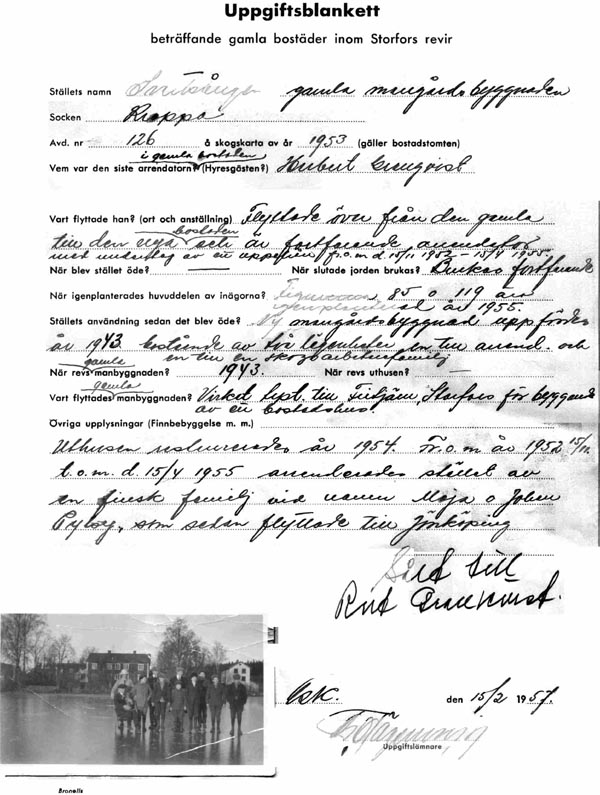 Uppgiftsblankett
beträffande gamla bostäder inom Storfors revir
Ställets namn gamla mangårdsbyggnaden
Socken Kroppa
Avd. nr 126 å skogskarta av år 1953 (gäller bostadstomten)
i gamla bostaden
Vem var den siste arrendatorn? (Hyresgästen?)
Vart flyttade han? (ort och anställning) Flyttade över från den gamla
bostaden
till den nya och är fortfarande arrendator
med undantag av ett uppehåll fr.o.m. d. 15/11 1952 – 15/4 1955.
När blev stället öde? — När slutade jorden brukas? Brukas fortfarande
När igenplanterades huvuddelen av inägorna? 85 o 119 års
år 1955.
Ställets användning sedan det blev öde? Ny mangårdsbyggnad uppfördes
år 1943 bestående av två lägenheter en till arrend. och
en till en skogsarbetarfamilj
gamla
När revs manbyggnaden? 1943. När revs uthusen? —
gamla
Vart flyttades manbyggnaden? Virket till Storfors för byggande
av ett bostadshus.
Övriga upplysningar (Finnbebyggelse m. m.)
Uthusen restaurerades år 1954. Fr.o.m år 1952 15/11
t.o.m. d. 15/4 1955 arrenderades stället av
en finsk familj vid namn Maja o Johan
som sedan flyttade till Jönköping
den 15/2 1957.
Uppgiftslämnare
Bronells